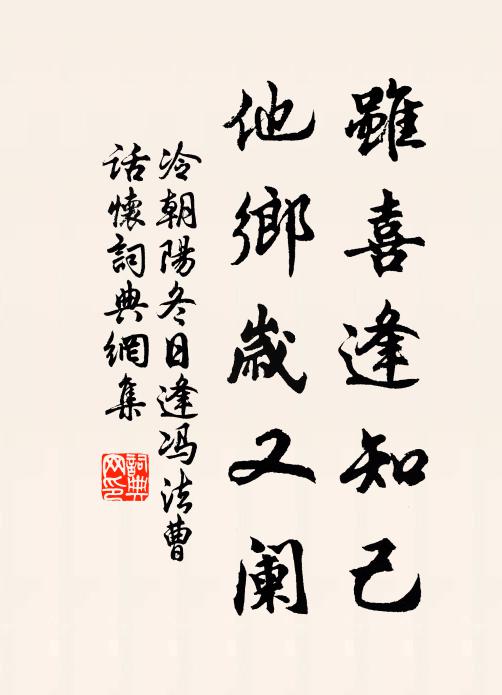 雖喜逢知己
他鄉歲又阑
冷朝陽冬日逢冯法曹
话懷詞典網集
詞典网印